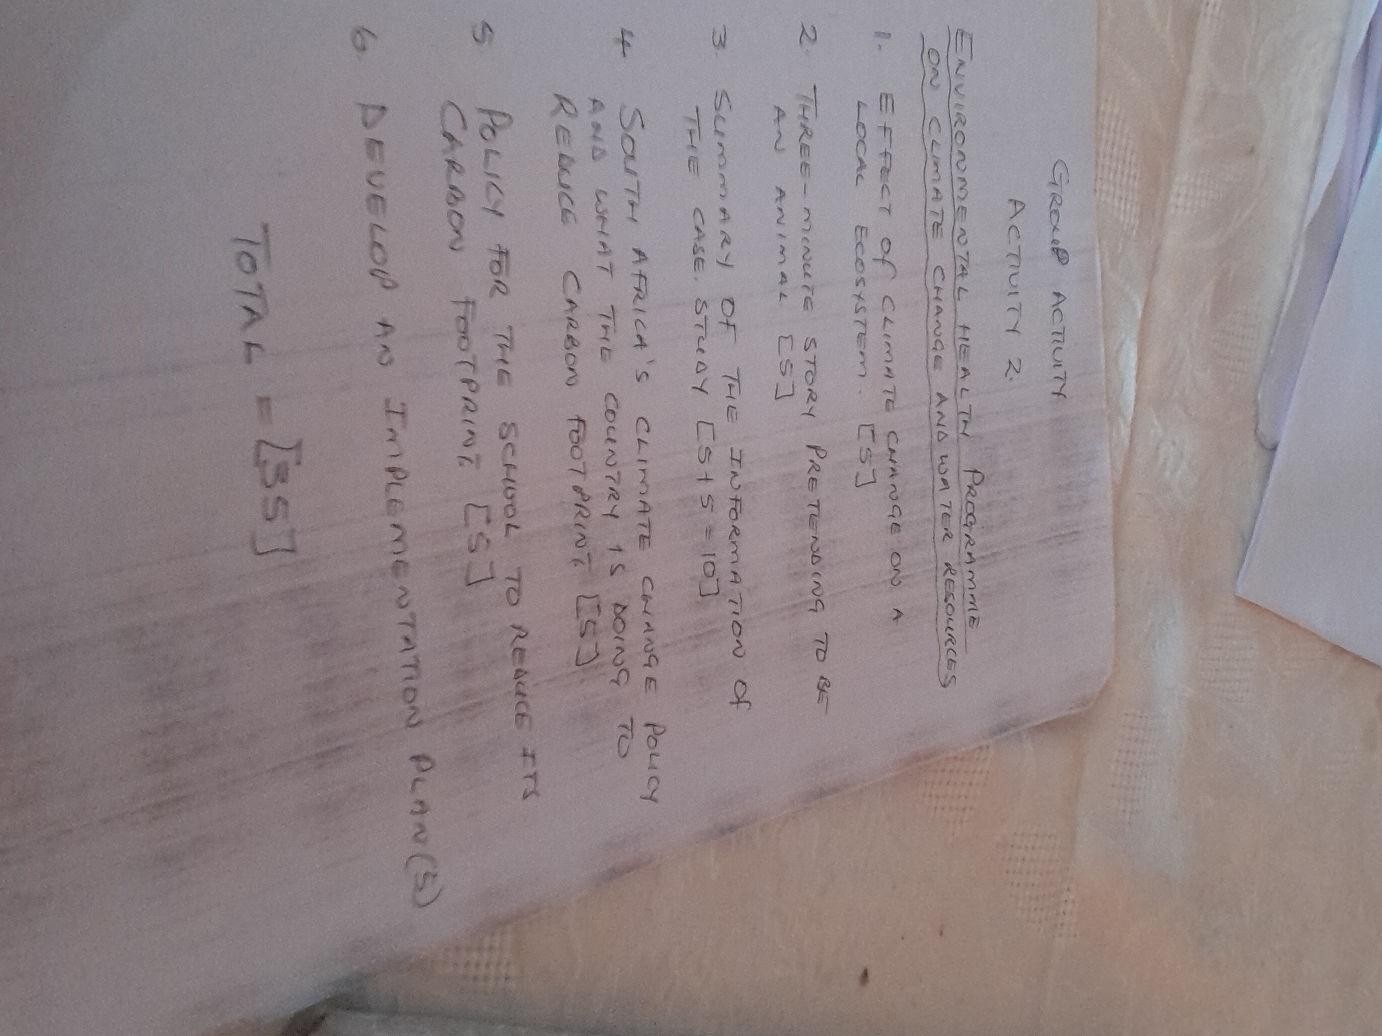 GROUP ACTIVITY
ACTIVITY 2.
ENVIRONMENTAL HEALTH PROGRAMME
ON CLIMATE CHANGE AND WATER RESOURCES
1. EFFECT OF CLIMATE CHANGE ON A
LOCAL ECOSYSTEM. [5]
2. THREE-MINUTE STORY PRETENDING TO BE
AN ANIMAL [5]
3. SUMMARY OF THE INFORMATION OF
THE CASE STUDY [5+5=10]
4 SOUTH AFRICA'S CLIMATE CHANGE POLICY
AND WHAT THE COUNTRY IS DOING TO
REDUCE CARBON FOOTPRINT [5]
5 POLICY FOR THE SCHOOL TO REDUCE ITS
CARBON FOOTPRINT [5]
6. DEVELOP AN IMPLEMENTATION PLAN(5)
TOTAL = [35]